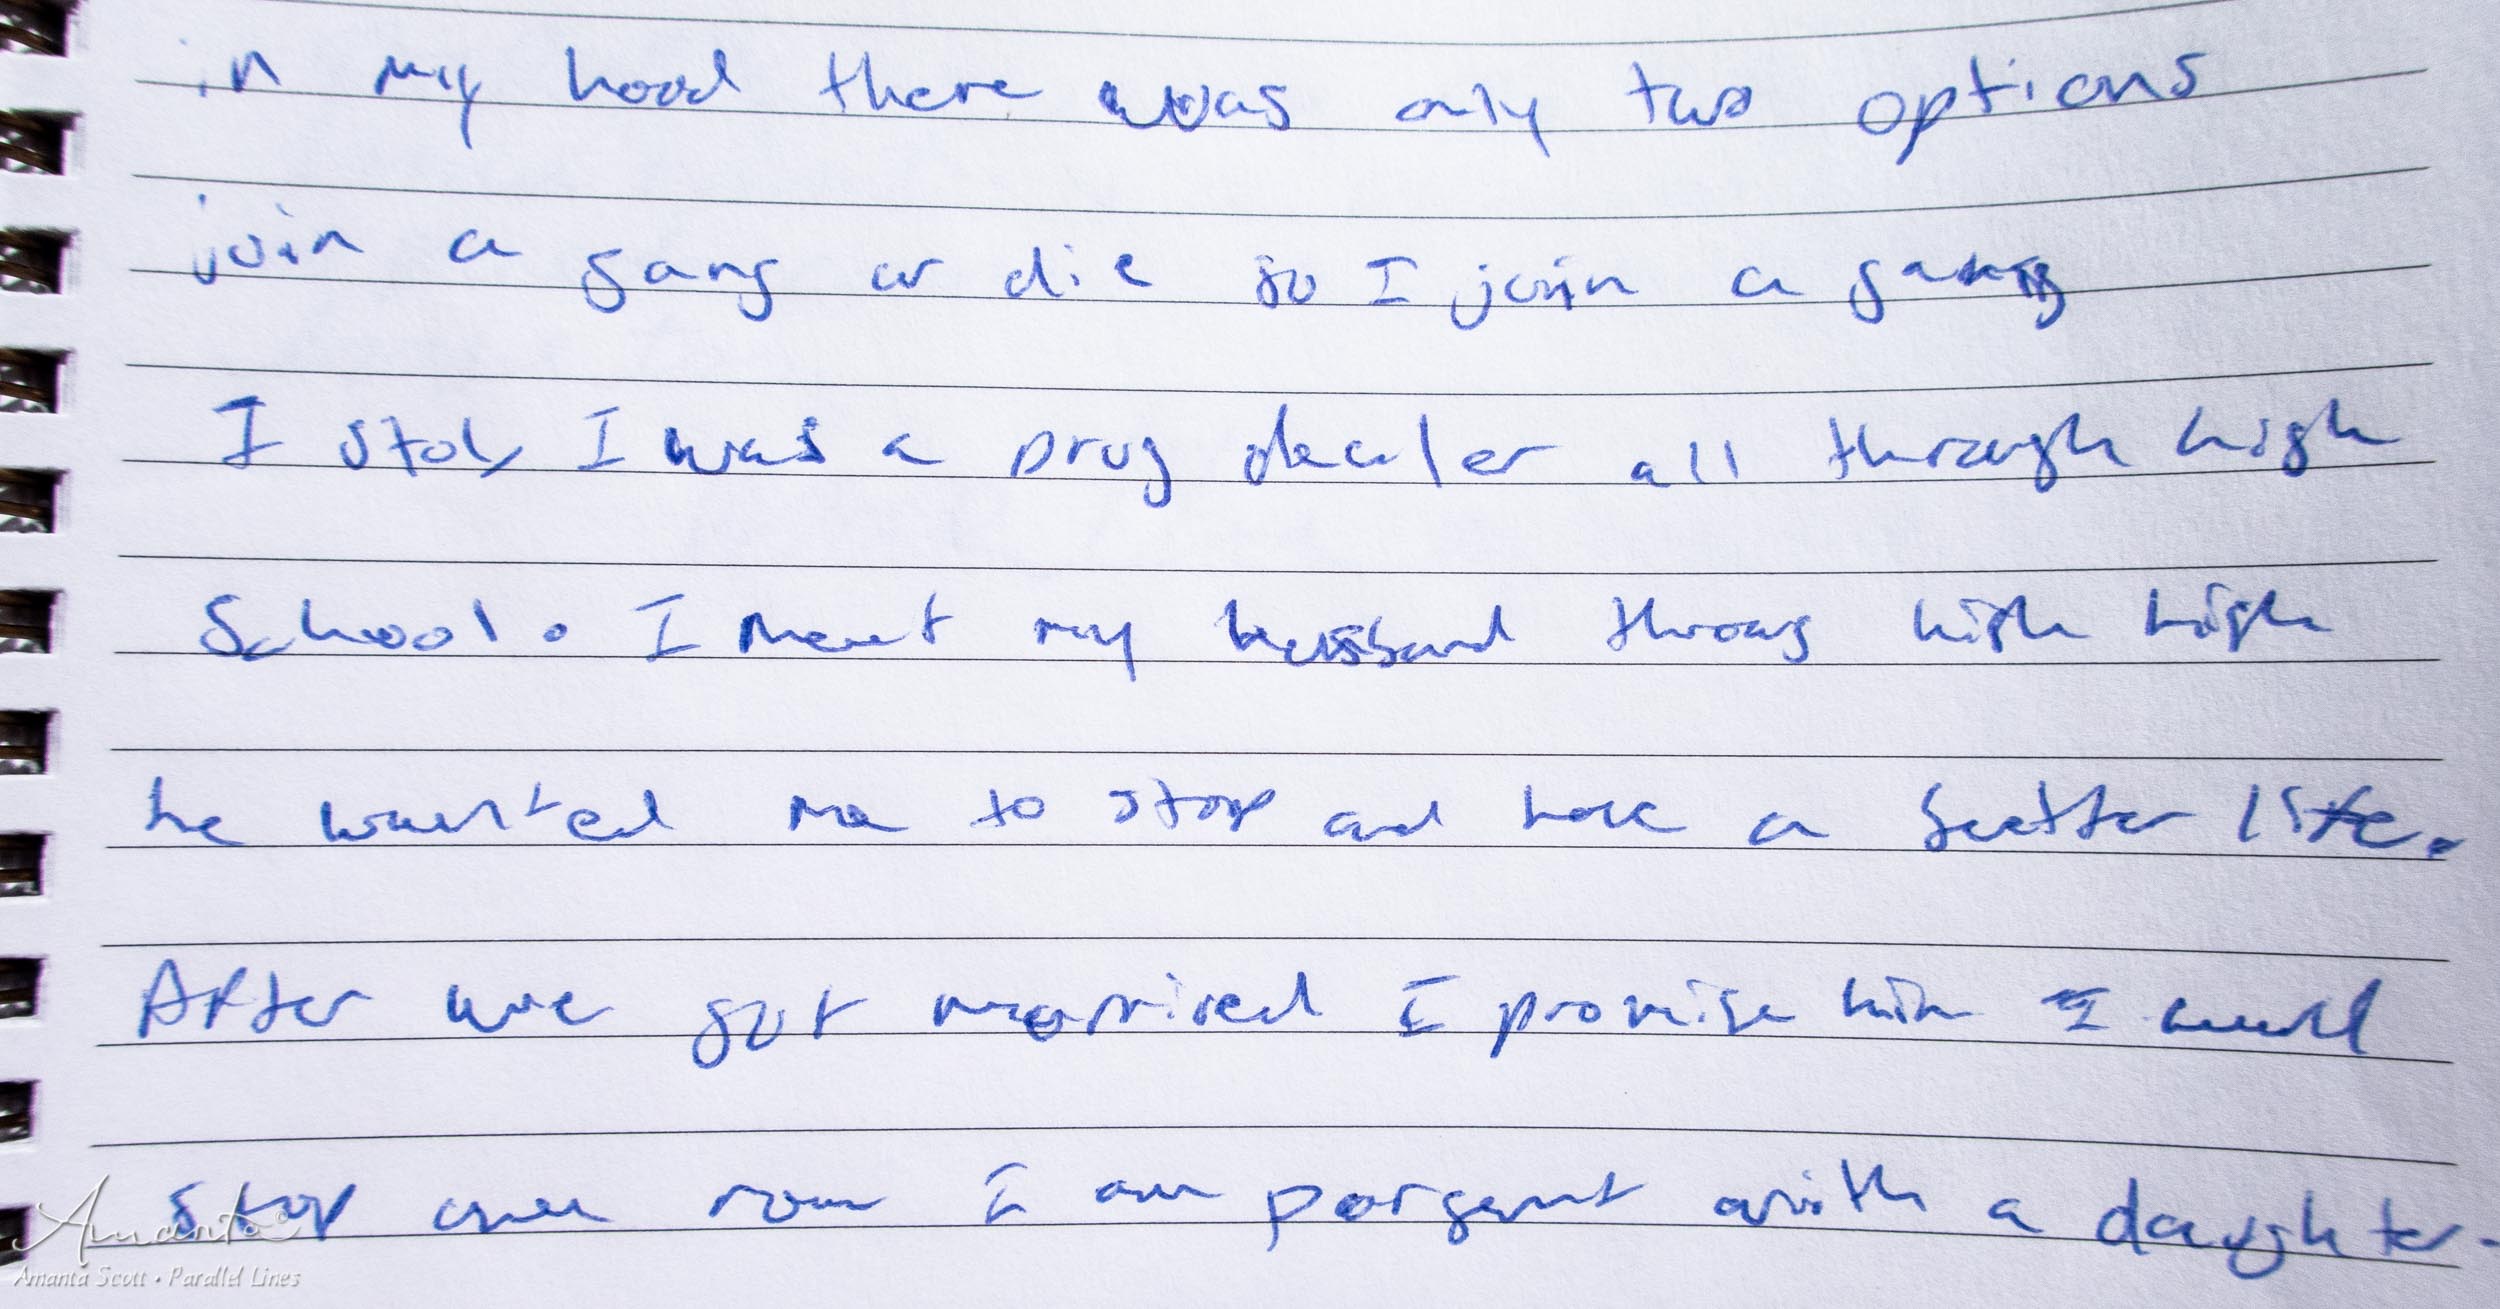 in my hood there was only two options
join a gang or die so I join a gang
I stol, I was a Drug dealer all through high
School. I meet my husband throug high high
he wanted me to stop and have a better life.
After we got married I promise him I would
stop and now I am porgent with a daughter.
Amanta ©
Amanta Scott • Parallel Lines